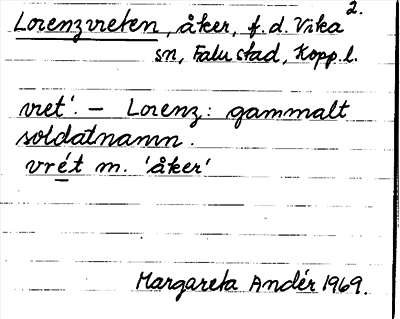 2.
Lorenzvreten, åker, f.d. Vika
sn, Falu stad, Kopp. l.
vret'. – Lorenz: gammalt
soldatnamn.
vrét m. 'åker'
Margareta Andér 1969.